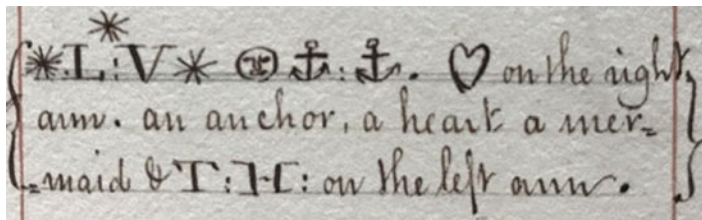 *L:V* ⚓:⚓. ♡ on the right
arm. an anchor, a heart a mer=
=maid & T:H: on the left arm.